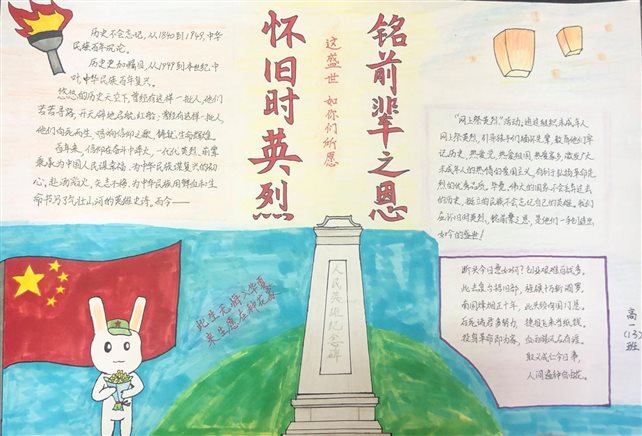 铭前辈之恩
怀旧时英烈
这盛世 如你们所愿
历史不会忘记,从1840到1949,中华
民族百年沉沦。
历史更加瞩目,从1949到本世纪中
叶中华民族百年复兴。
悠悠的历史天空下,曾经有这样一批人,他们
苦苦寻路,开天辟地启航红船;
他们向死而生,
百年来,信仰在奋斗中伟大,一代代英烈、前辈
秉承为中国人民谋幸福,为中华民族谋复兴的初
心,赴汤蹈火,矢志不移,为中华民族用鲜血和生
命书写了气壮山河的英雄史诗。而今——
“网上祭英烈”活动,通过组织未成年人
网上祭英烈,引导孩子们缅怀先辈,教育他们牢
记历史、热爱党、热爱祖国、热爱家乡,激发广大
未成年人的热情的爱国主义,有利于弘扬革命先
烈的优秀品质。毕竟,伟大的国家不会丢弃过去
的历史,挺立的民族不会忘记自己的英雄。我们
在怀旧时英烈、铭前辈之恩,是他们一手创造出
如今的盛世!
人民英雄纪念碑
此生无悔入华夏
来生愿在种花家
断头今日意如何?创业艰难百战多。
此去泉台招旧部,旌旗十万斩阎罗。
南国烽烟正十年,此头须向国门悬。
后死诸君多努力,捷报飞来当纸钱。
投身革命即为家,血雨腥风应有涯。
取义成仁今日事,
人间遍种自由花。
高一(13)班